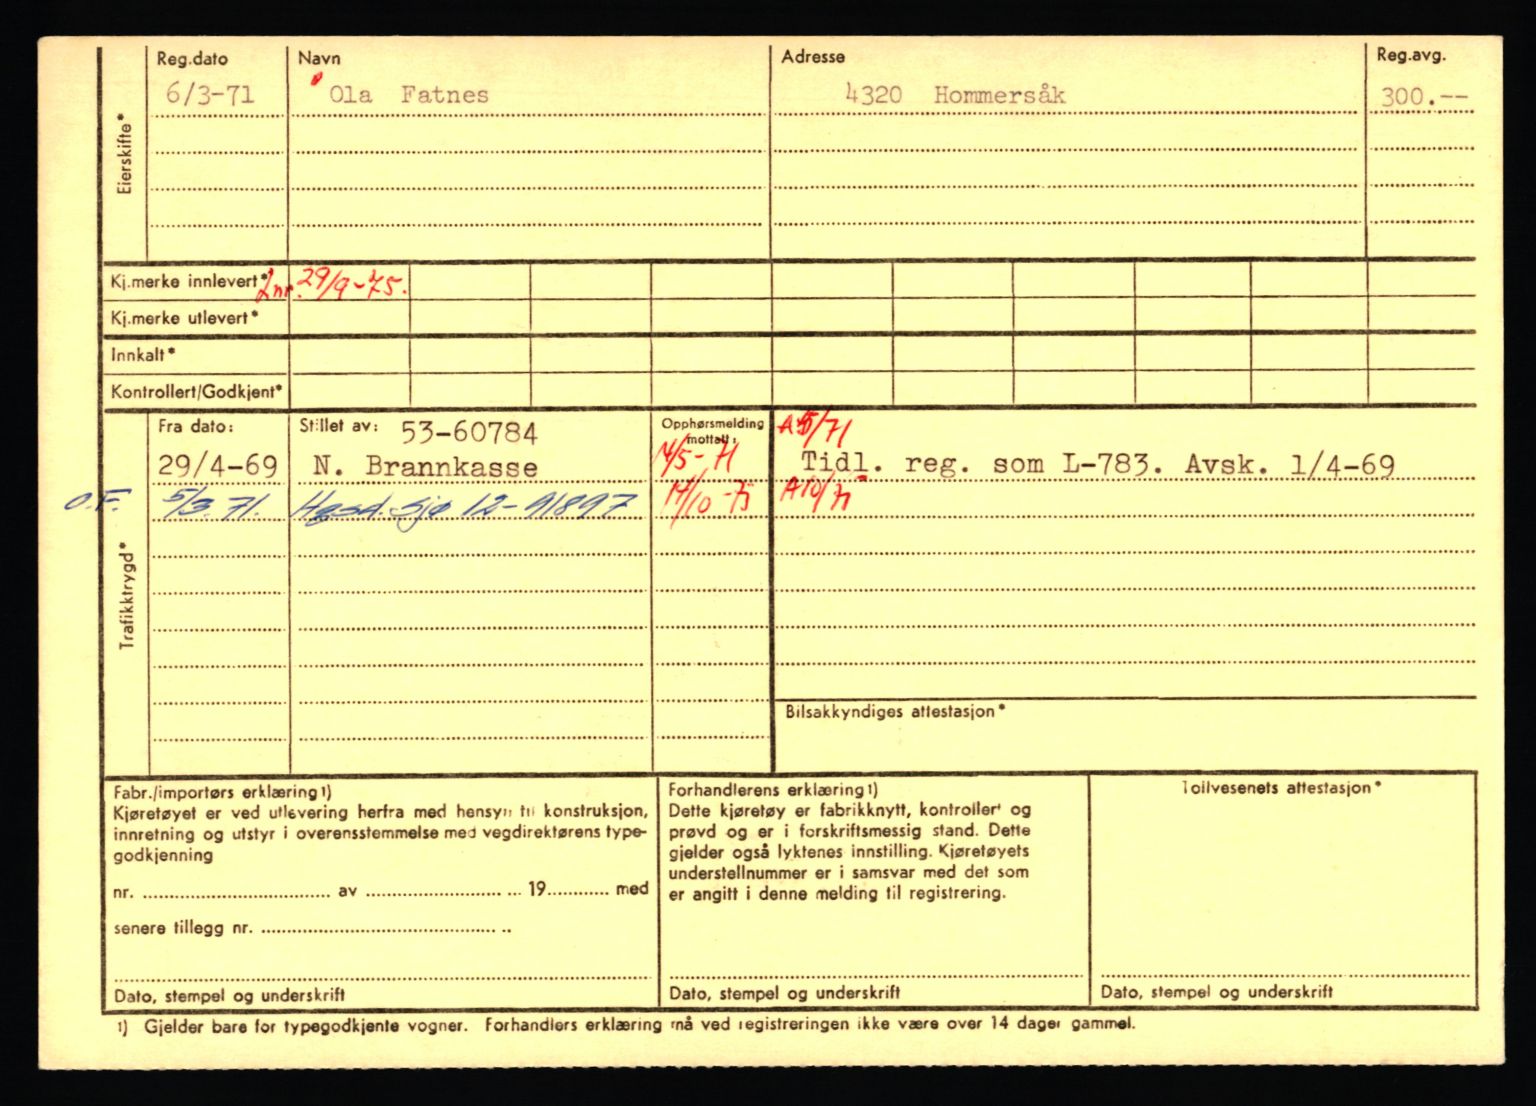 Reg.dato Navn Adresse Reg.avg.
6/3-71 Ola Fatnes 4320 Hommersåk 300.--
Eierskifte*
Kj.merke innlevert* 2nr. 29/9-75.
Kj.merke utlevert*
Innkalt*
Kontrollert/Godkjent*
Fra dato: Stillet av: 53-60784 Opphørsmelding mottatt:
29/4-69 N. Brannkasse Tidl. reg. som L-783. Avsk. 1/4-69
O.F. 5/3.71. Hgsd. Sjø 12-91897
Trafikktrygd*
Bilsakkyndiges attestasjon*
Fabr./importørs erklæring 1) Forhandlerens erklæring 1) Tollvesenets attestasjon*
Kjøretøyet er ved utlevering herfra med hensyn til konstruksjon,
innretning og utstyr i overensstemmelse med vegdirektørens type-
godkjenning
nr. av 19 med
senere tillegg nr.
Dato, stempel og underskrift
Dette kjøretøy er fabrikknytt, kontrollert og
prøvd og er i forskriftsmessig stand. Dette
gjelder også lyktenes innstilling. Kjøretøyets
understellnummer er i samsvar med det som
er angitt i denne melding til registrering.
Dato, stempel og underskrift
Dato, stempel og underskrift
1) Gjelder bare for typegodkjente vogner. Forhandlers erklæring må ved registreringen ikke være over 14 dager gammel.